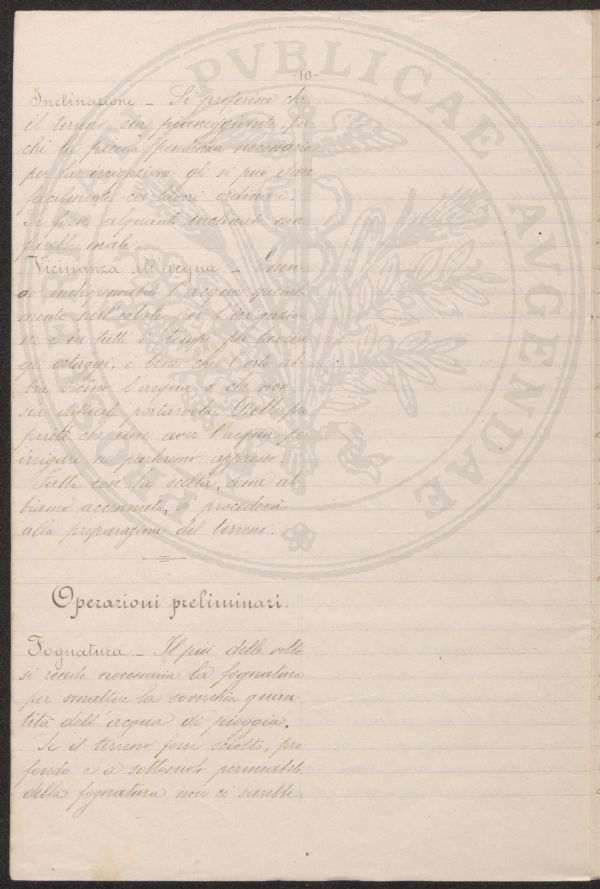 -10-
Inclinazione - Si preferisce che
il terreno sia pianeggiante, per
chè la piccola pendenza necessaria
per la irrigazione gli si può dare
facilmente coi lavori ordinari.
Se fosse alquanto inclinato non
sarebbe male.
Vicinanza all'acqua - Essen-
do indispensabile l'acqua special
mente nell'estate per l'irrigazio-
ne e in tutti i tempi per lavare
gli ortaggi, è bene che l'orto ab-
bia vicino l'acqua o che non
sia difficile portarvela. Delle pro
prietà che deve aver l'acqua per
irrigare ne parleremo appresso.
Fatta così la scelta, come ab-
biamo accennato, si procederà
alla preparazione del terreno.
Operazioni preliminari.
Fognatura - Il più delle volte
si rende necessaria la fognatura
per smaltire la soverchia quan-
tità dell'acqua di pioggia.
Se il terreno fosse sciolto, pro-
fondo e a sottosuolo permeabile,
della fognatura non ci sarebbe
PVBLICAE
AVGENDAE